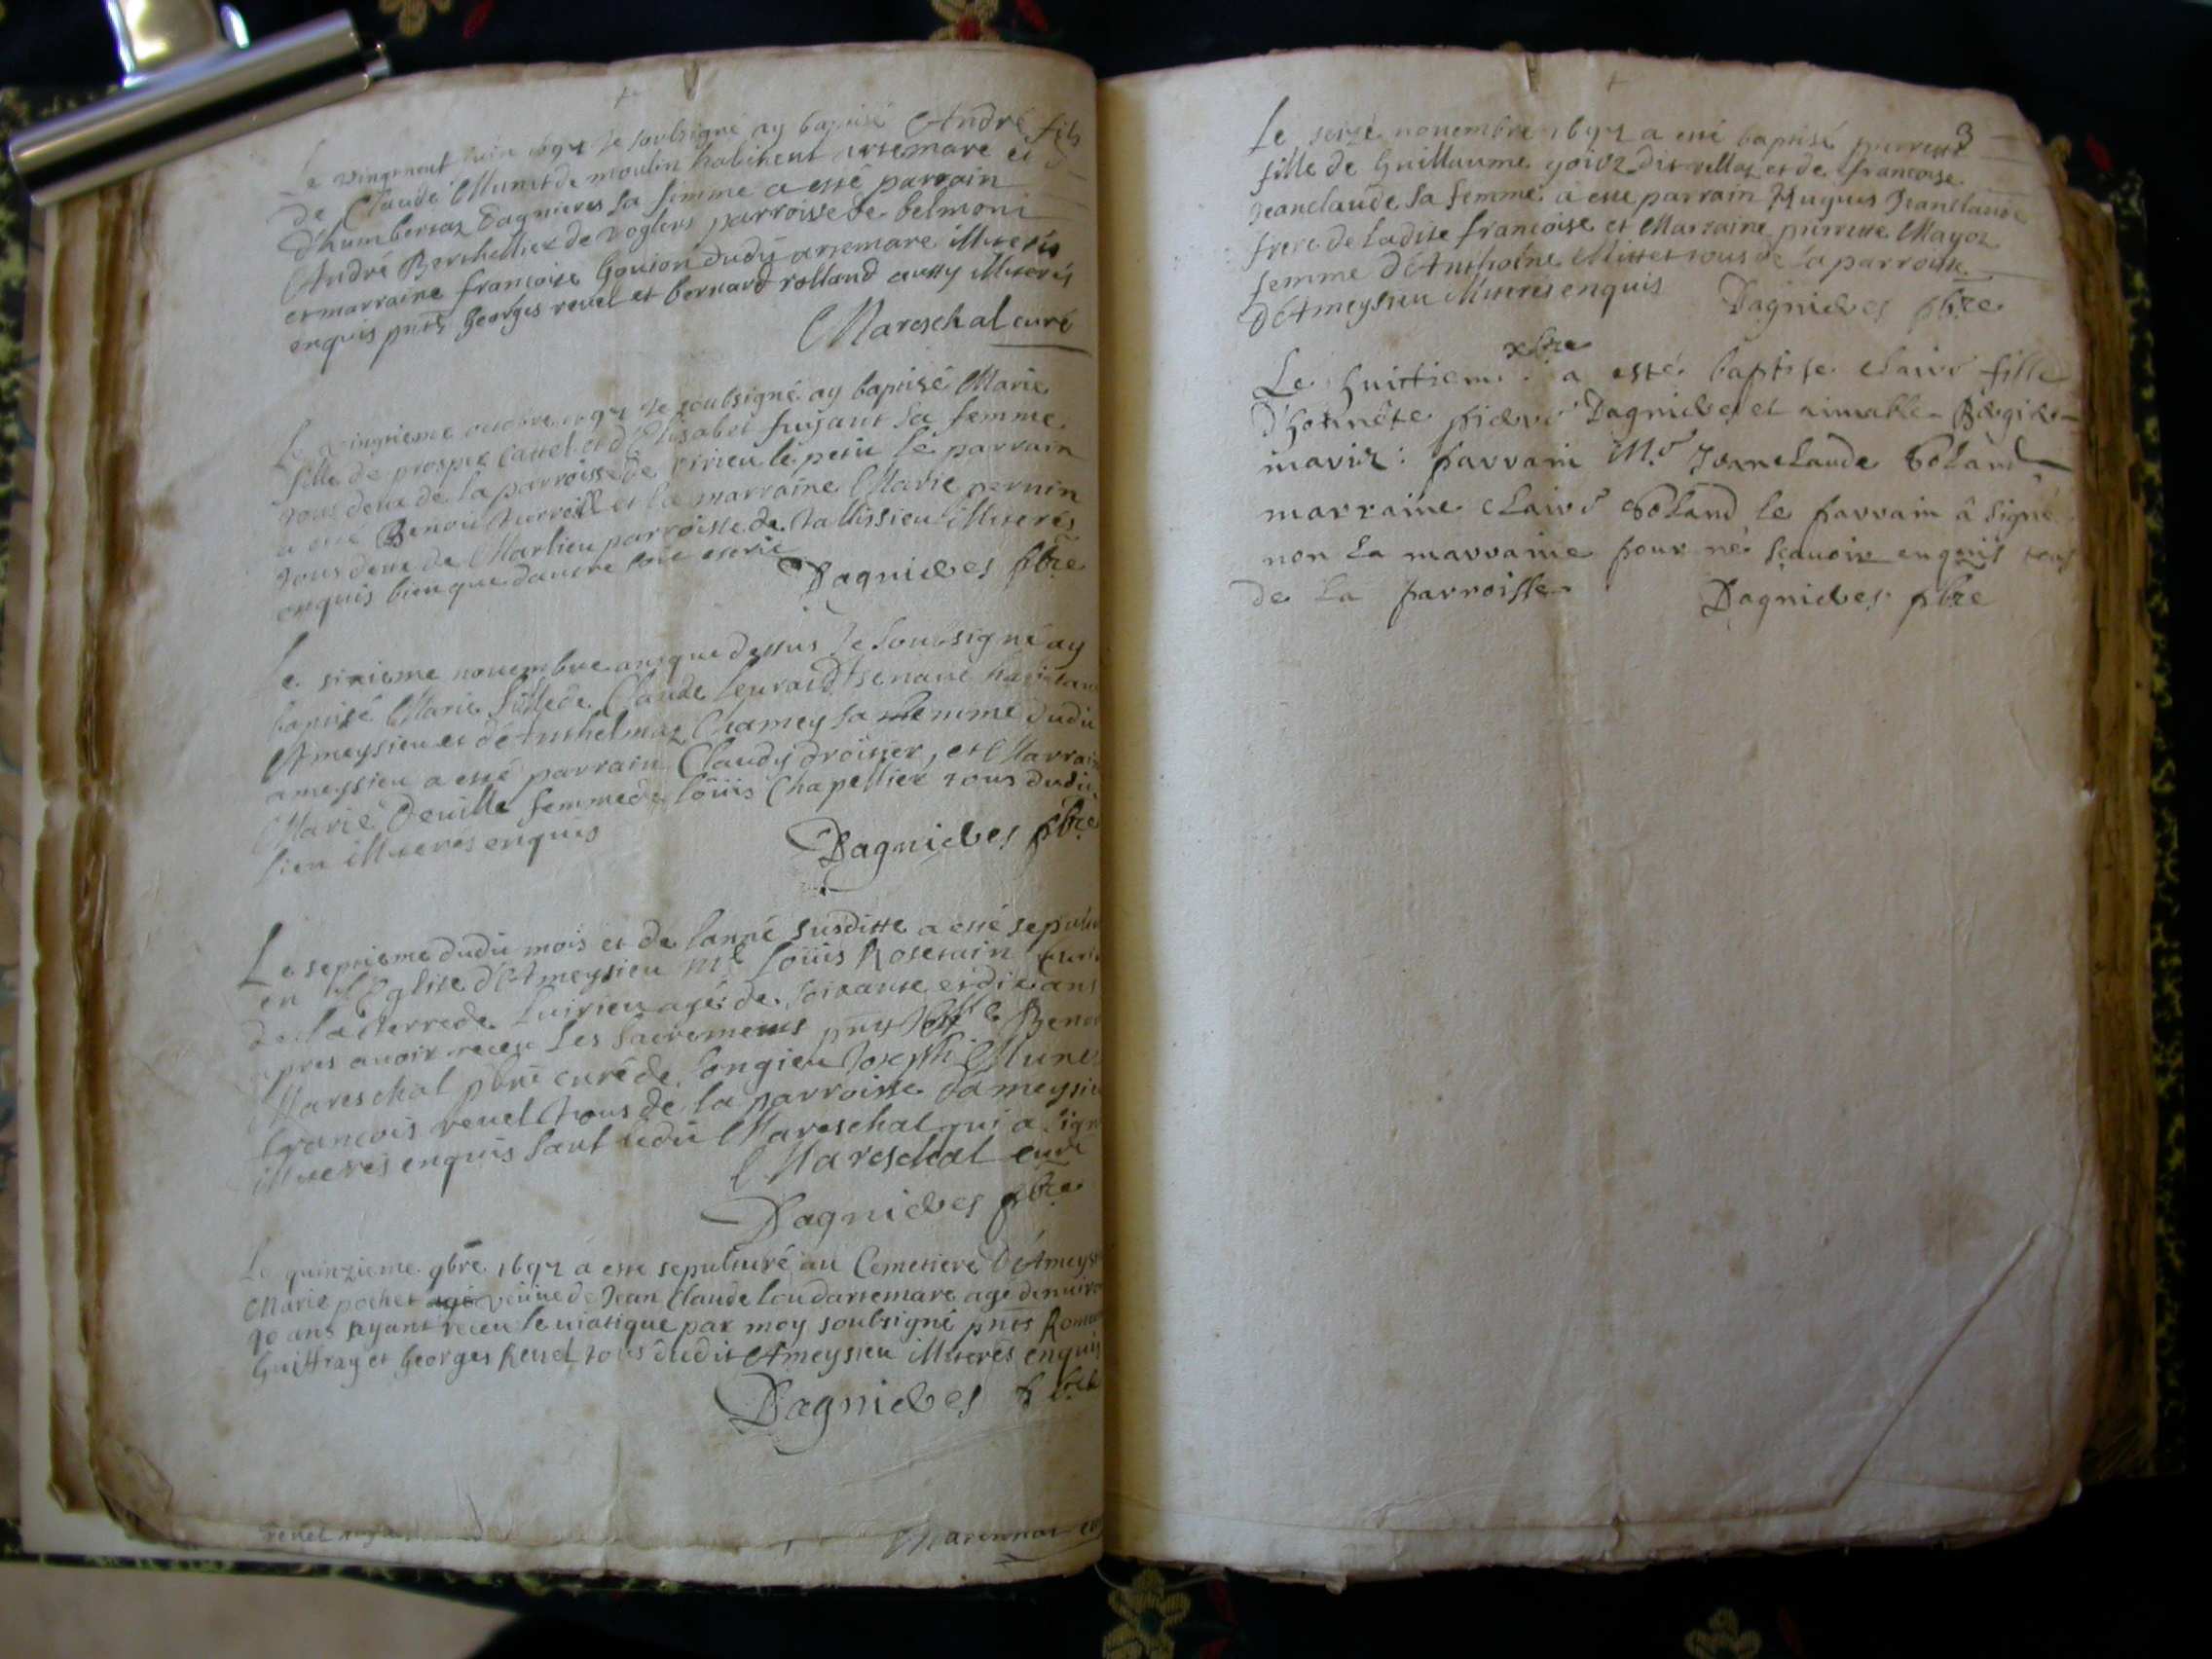 Le vingt neuf juin 1692 Je soubsigné ay baptisé André fils
de Claude Munet de moulin habitent artemare et
d'humbertaz Dagnieres sa femme a esté parrain
André Berthellier de Voglens parroisse de belmont
et marraine françoise Goujon dudit artemare illiteres
enquis pnts Georges revel et bernard rolland aussy illiteres
Mareschal curé
Le vingtieme octobre 1692 Je soubsigné ay baptisé Marie
fille de prosper cattel et d'Elisabet fuyant sa femme
tous deux de la parroisse de virieu le petit le parrain
a esté Benoit et la marraine Marie pernin
tous deux de Marlieu parroisse de tallissieu illiteres
enquis bien que d'autre soit escrit
Dagnieres pbre
Le sixieme novembre an que dessus Je soubsigné ay
baptisé Marie fille de Claude habitan
Ameysieu et de Anthelmaz Chamey sa femme dudit
ameysieu a esté parrain Claudy droisier, et Marrain
Marie Deville femme de Loüis Chapellier tous dudit
lieu illiteres enquis
Dagnieres pbre
Le septieme dudit mois et de lanné susditte a esté sepultu
en l'Eglise d'Ameysieu Mr Loüis Rosetain
de la terre de Luirieu agé de soixante et dix ans
apres avoir receu Les sacrements pnts Mre Benoi
Mareschal pbre curé de songieu Joseph Munet
françois revel tous de la parroisse dameysieu
illiteres enquis sauf ledit Mareschal qui a signé
Mareschal curé
Dagnieres pbre
Le quinzieme 9bre 1692 a esté sepulturé au Cemetiere D'Ameys
Marie pochet veüve de Jean Claude Lou dartemare agé denviro
70 ans ayant receu le viatique par moy soubsigné pnts Roma
Guiffray et Georges Revel tous dudit Ameysieu illiteres enquis
Dagnieres pbre
revel
3
Le seize novembre 1692 a esté baptisé pierrette
fille de Guillaume dit vellaz et de francoise
Jeanclaude sa femme a esté parrain Hugues Jeanclaude
frere de ladite francoise et Marraine pierrette Mayoz
femme d'Anthoine Mittet tous de la parroisse
d'Ameysieu illiteres enquis
Dagnieres pbre
xbre
Le huittiem a esté baptisé claire fille
d'honnête pierre Dagnieres et aimable
mariz : parrain Mr Jeanclaude Boland
marraine claire Boland le parrain â signé
non la marraine pour ne sçavoir enquis tous
de la parroisse
Dagnieres pbre